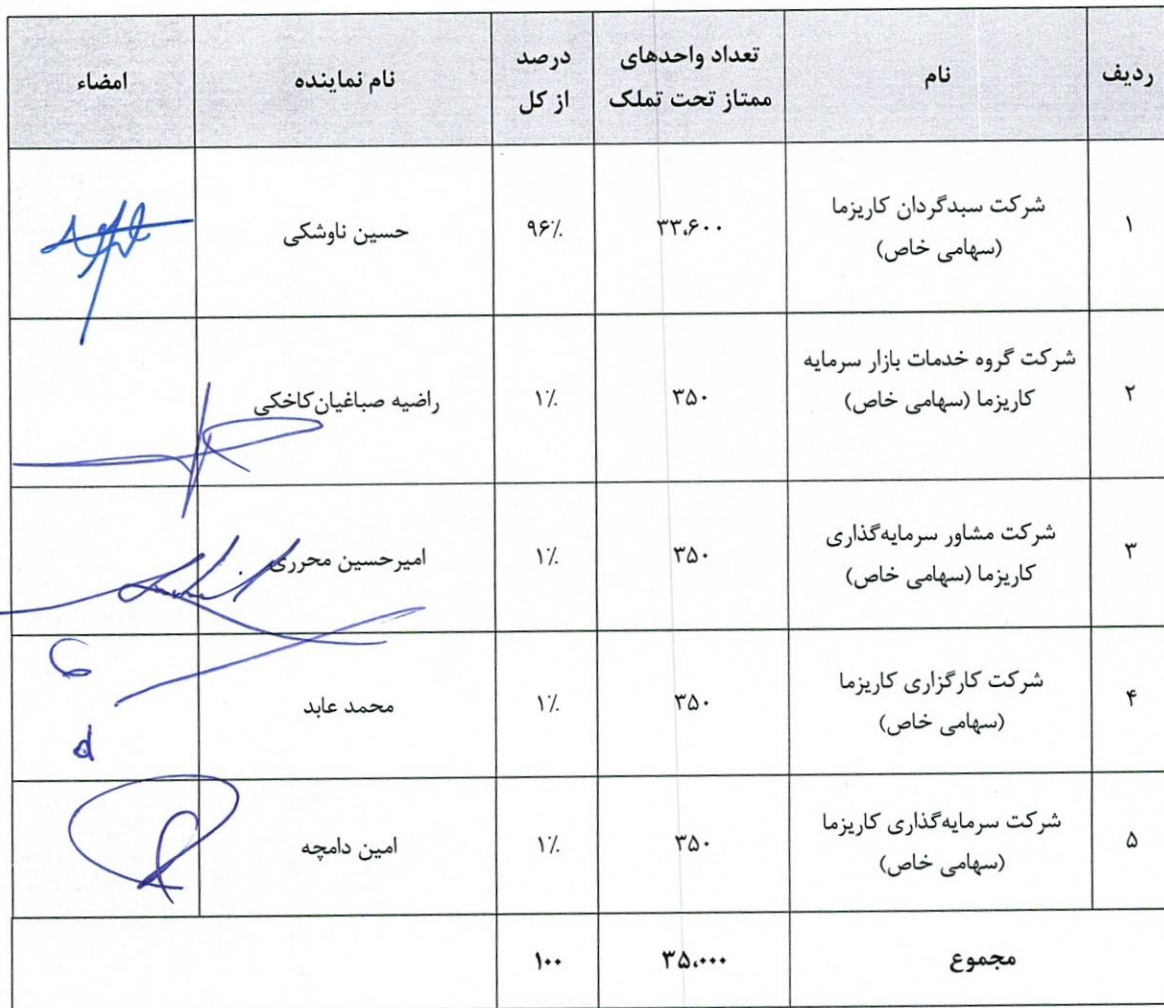 ردیف
نام
تعداد واحدهای
ممتاز تحت تملک
درصد
از کل
نام نماینده
امضاء
۱
شرکت سبدگردان کاریزما
(سهامی خاص)
۳۳.۶۰۰
۹۶٪
حسین ناوشکی
۲
شرکت گروه خدمات بازار سرمایه
کاریزما (سهامی خاص)
۳۵۰
۱٪
راضیه صباغیان‌کاخکی
۳
شرکت مشاور سرمایه‌گذاری
کاریزما (سهامی خاص)
۳۵۰
۱٪
امیرحسین محرری
۴
شرکت کارگزاری کاریزما
(سهامی خاص)
۳۵۰
۱٪
محمد عابد
۵
شرکت سرمایه‌گذاری کاریزما
(سهامی خاص)
۳۵۰
۱٪
امین دامچه
مجموع
۳۵،۰۰۰
۱۰۰